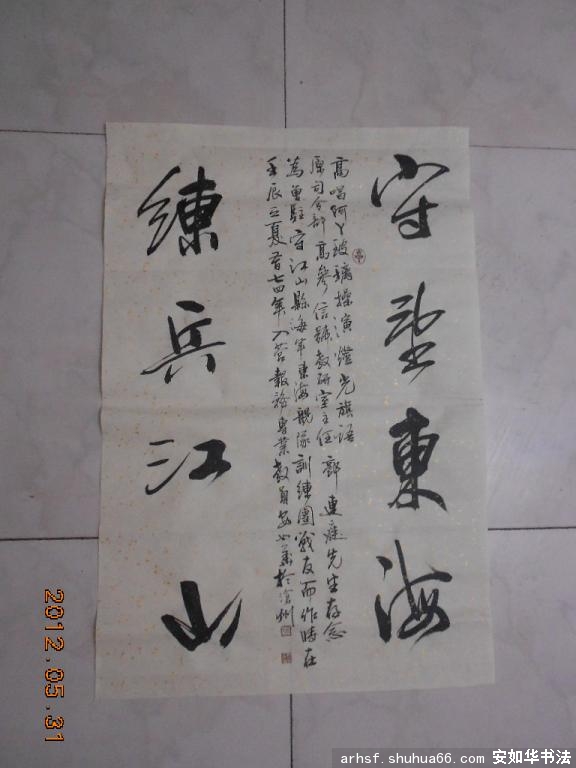 守望東海
高唱阿丫玻璃操演燈光旗語
原司令部高參信號教研室主任郭連庭先生存念
為曾駐守江山縣海軍東海艦隊訓練團戰友而作時在
壬辰立夏首七四年入營報務專業教員安如華於滄州
練兵江山
2012.05.31
arhsf.shuhua66.com 安如华书法